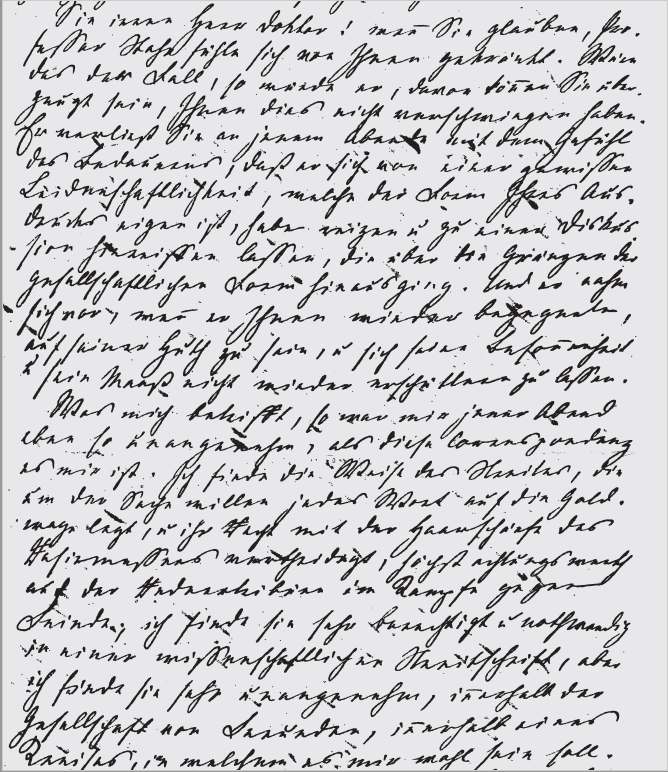 Sie irren Herr Doktor! wen̄ Sie glauben, Pro-
fessor Stahr fühle sich von Ihnen gekränkt. Wäre
das der Fall, so würde er, davon kön̄en Sie über-
zeugt sein, Ihnen dies nicht verschwiegen haben.
Er verließ Sie an jenem Abende mit dem Gefühl
des Bedauerns, daß er sich von einer gewissen
Leidenschaftlichkeit, welche der Form Ihres Aus-
drucks eigen ist, habe reizen u zu einer Diskus
sion hinreißen lassen, die über die Gränzen der
gesellschaftlichen Form hinausging. Und er nahm
sich vor, wen̄ er Ihnen wieder begegnete,
auf seiner Huth zu sein, u sich seine Beson̄enheit
u sein Maaß nicht wieder erschüttern zu lassen.
Was mich betrifft, so war mir jener Abend
eben so unangenehm, als diese Correspondenz
es mir ist. Ich finde die Weise des Streites, die
um der Sache willen jedes Wort auf die Gold-
wage legt, u ihr Recht mit der Haarschärfe des
Rasiermessers vertheidigt, höchst achtungswerth
auf der Rednertribüne im Kampfe gegen
Feinde; ich finde sie sehr berechtigt u nothwendig
in einer wissenschaftlichen Streitschrift, aber
ich finde sie sehr unangenehm, in̄erhalb der
Gesellschaft von Freunden, in̄erhalb eines
Kreises, in welchem es mir wohl sein soll.